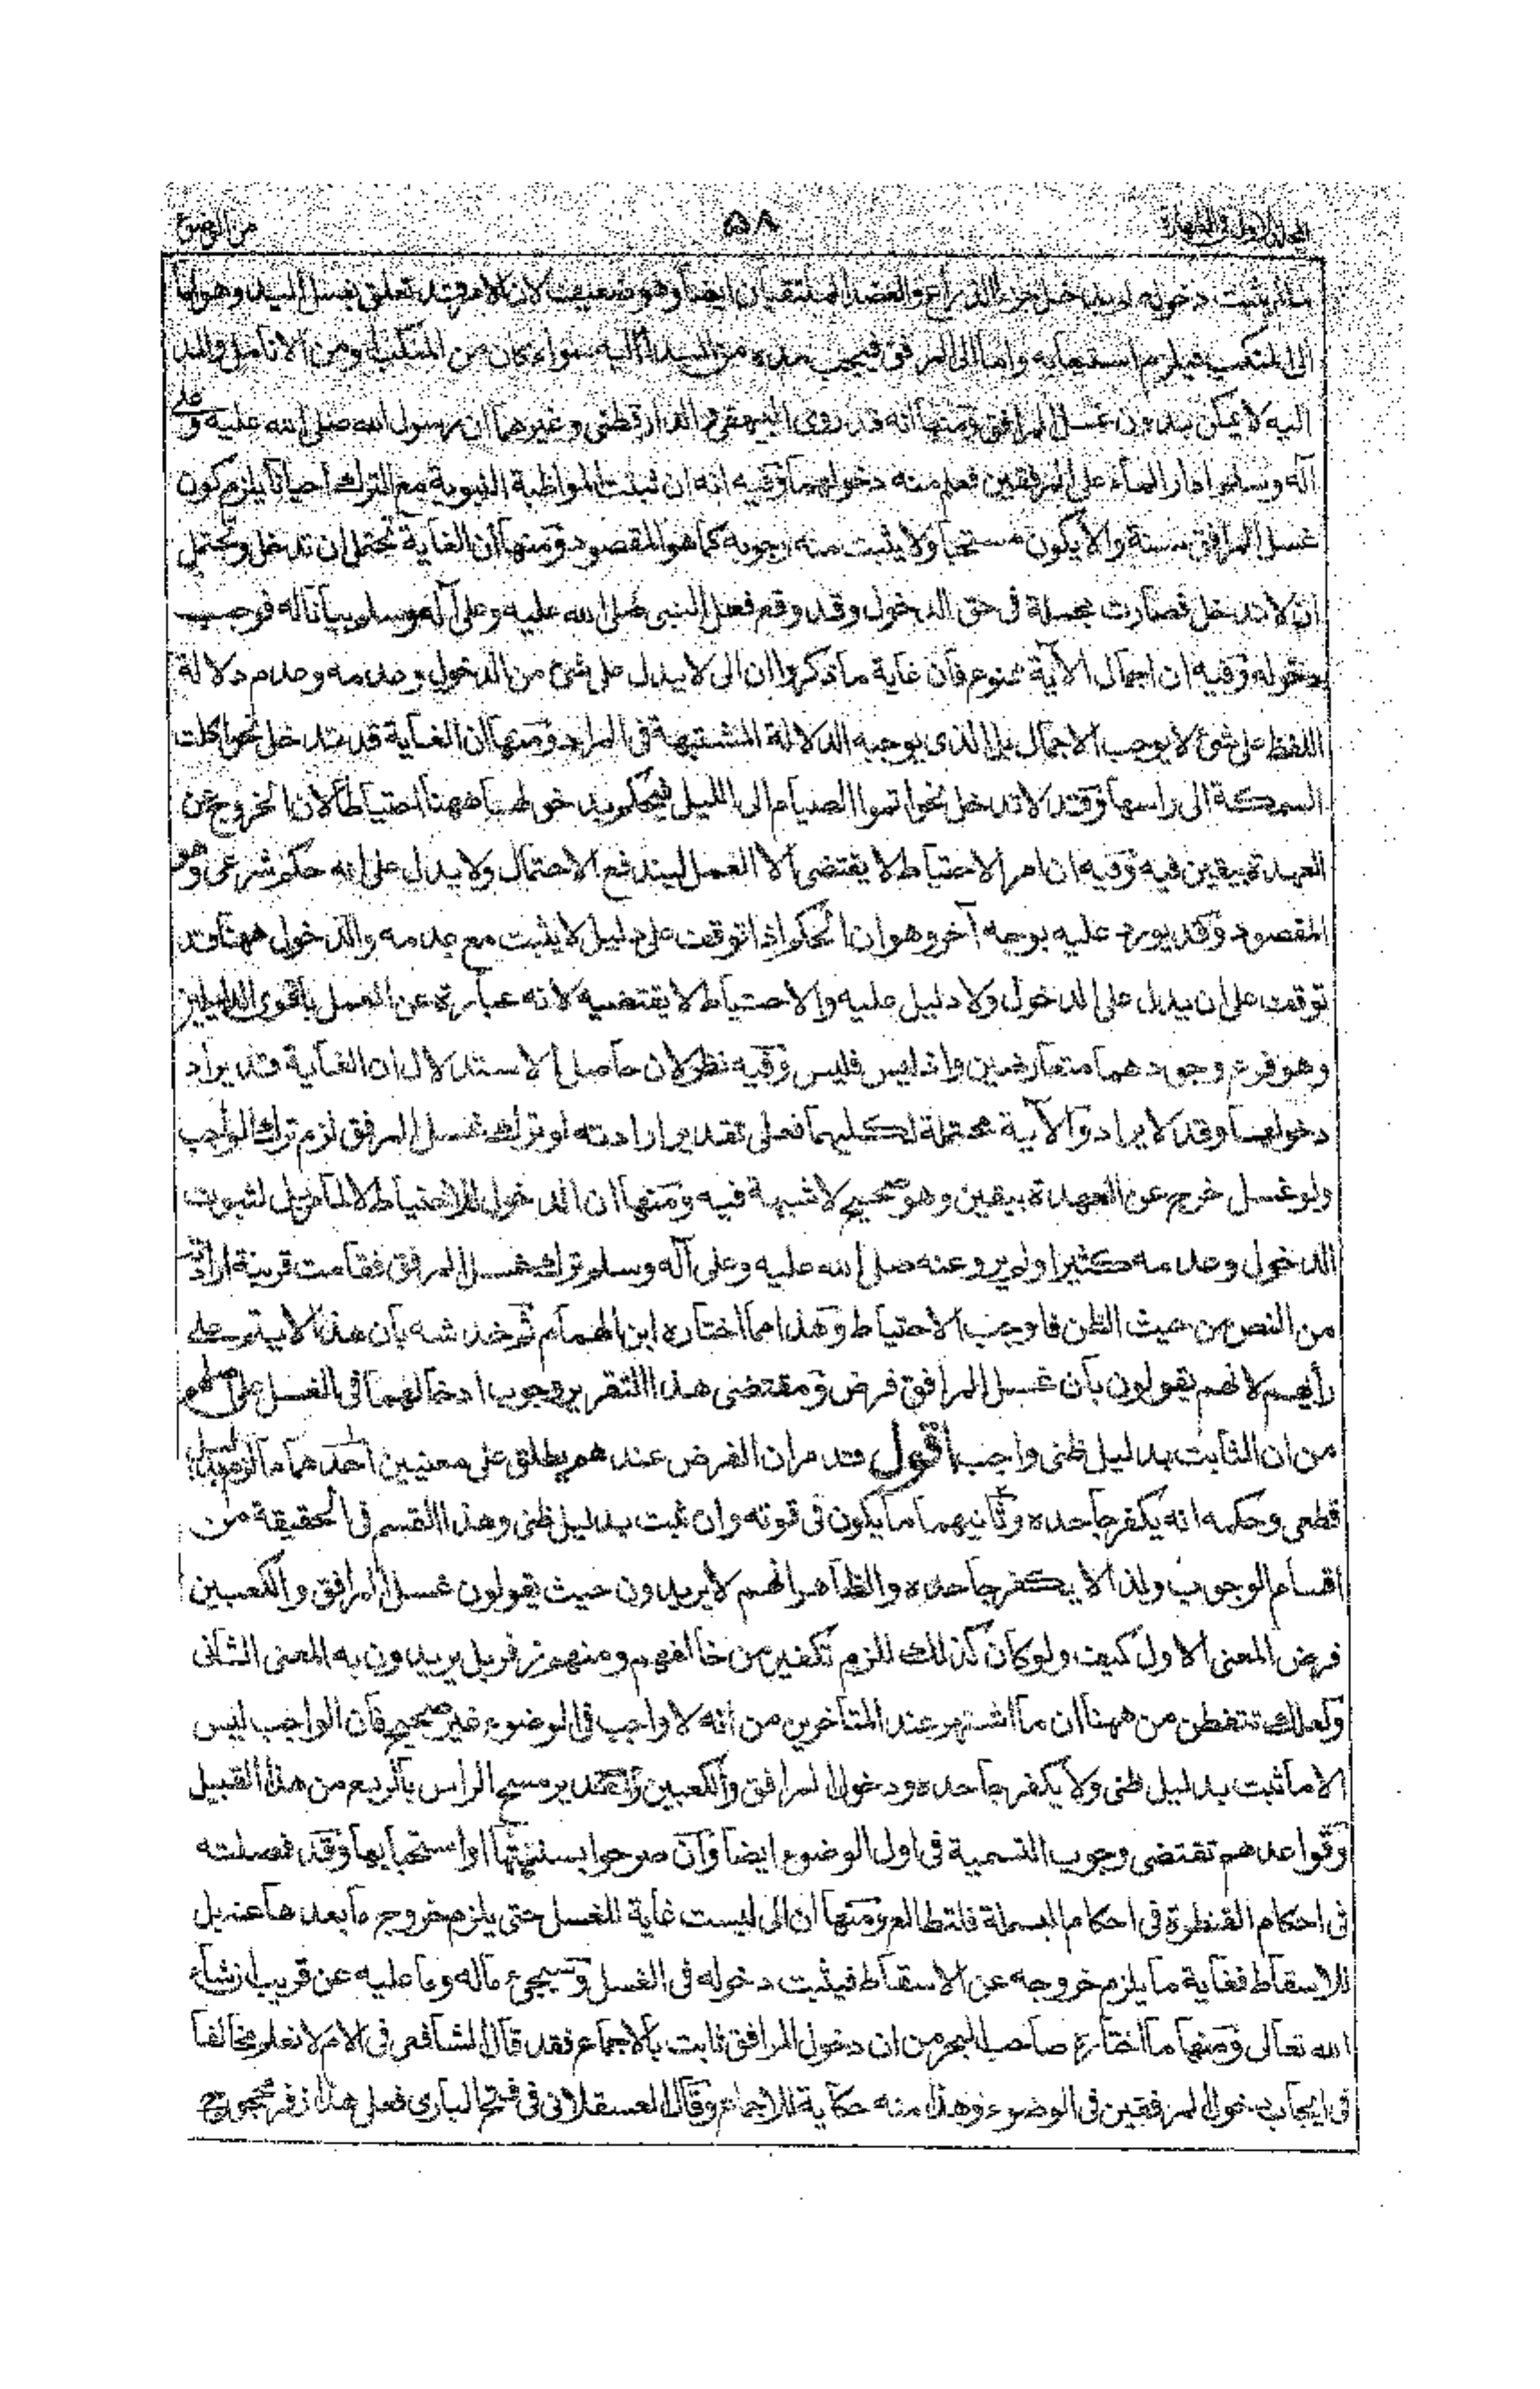 المجلد الاول فى الطهارة ٥٨ من الوضوء
مالم يثبت دخوله لم يدخل جزءا الذراع والعضد الملتقيان ايضا وهو ضعيف لان الامر قد تعلق بغسل اليد وهو لها
الى المنكب فيلزم استيعابه واما الى المرفق فيجب مده من المبدأ اليه سواء كان من المنكب او من الانامل والمد
اليه لا يمكن بدون غسل المرافق ومنها انه قد روى البيهقى والدارقطنى وغيرهما ان رسول الله صلى الله عليه وعلى
آله وسلم ادار الماء على المرفقين فعلم منه دخولهما وفيه انه ان ثبت المواظبة النبوية مع الترك احيانا يلزم كون
غسل المرافق سنة والا يكون مستحبا ولا يثبت منه وجوبه كما هو المقصود ومنها ان الغاية تحتمل ان تدخل وتحتمل
ان لا تدخل فصارت مجملة فى حق الدخول وقد وقع فعل النبى صلى الله عليه وعلى آله وسلم بيانا له فوجب
دخوله وفيه ان اجمال الآية ممنوع فان غاية ما ذكروا ان الى لا يدل على شئ من الدخول وعدمه وعدم دلالة
اللفظ على شئ لا يوجب الاجمال بل الذى يوجبه الدلالة المشتبهة فى المراد ومنها ان الغاية قد تدخل نحو اكلت
السمكة الى راسها وقد لا تدخل نحو اتموا الصيام الى الليل فيحكم بدخولها ههنا احتياطا لان الخروج عن
العهدة بيقين فيه وفيه ان امر الاحتياط لا يقتضى الا العمل ليندفع الاحتمال ولا يدل على انه حكم شرعى وهو
المقصود وقد يورد عليه بوجه آخر وهو ان الحكم اذا توقف على دليل لا يثبت مع عدمه والدخول ههنا قد
توقف على ان يدل على الدخول ولا دليل عليه والاحتياط لا يقتضيه لانه عبارة عن العمل باقوى الدليلين
وهو فرع وجودهما متعارضين واذ ليس فليس وفيه نظر لان حاصل الاستدلال ان الغاية قد يراد
دخولها وقد لا يراد والآية محتملة لكليهما فعلى تقدير ارادته لو ترك غسل المرفق لزم ترك الواجب
ولو غسل خرج عن العهدة بيقين وهو صحيح لا شبهة فيه ومنها ان الدخول للاحتياط لا لثبوت
الدخول وعدمه كثيرا ولم يرو عنه صلى الله عليه وعلى آله وسلم ترك غسل المرفق فقامت قرينة ارادته
من النص من حيث الظن فاوجب الاحتياط وهذا ما اختاره ابن الهمام ثم خدشه بان هذا لا يتم على
رأيهم لانهم يقولون بان غسل المرافق فرض ومقتضى هذا التقرير وجوب ادخالهما فى الغسل على
من ان الثابت بدليل ظنى واجب اقول قد مر ان الفرض عندهم يطلق على معنيين احدهما ما لزم بدليل
قطعى وحكمه انه يكفر جاحده وثانيهما ما يكون فى قوته وان ثبت بدليل ظنى وهذا القسم فى الحقيقة من
اقسام الوجوب ولذا لا يكفر جاحده والظاهر انهم لا يريدون حيث يقولون غسل المرافق والكعبين
فرض المعنى الاول كيف ولو كان كذلك للزم تكفير من خالفهم ومنهم زفر بل يريدون به المعنى الثانى
ولعلك تتفطن من ههنا ان ما اشتهر عند المتاخرين من انه لا واجب فى الوضوء غير صحيح فان الواجب ليس
الا ما ثبت بدليل ظنى ولا يكفر جاحده ودخول المرافق والكعبين وتقدير مسح الراس بالربع من هذا القبيل
وقواعدهم تقتضى وجوب التسمية فى اول الوضوء ايضا وان صرحوا بسنيتها او استحبابها وقد فصلته
فى احكام القنطرة فى احكام البسملة فلتطالع ومنها ان الى ليست غاية للغسل حتى يلزم خروج ما بعدها عنه بل
للاسقاط فغاية ما يلزم خروجه عن الاسقاط فيثبت دخوله فى الغسل وسيجئ ماله وما عليه عن قريب ان شاء
الله تعالى ومنها ما اختاره صاحب البحر من ان دخول المرافق ثابت بالاجماع فقد قال الشافعى فى الام لا نعلم مخالفا
فى ايجاب دخول المرفقين فى الوضوء وهذا منه حكاية للاجماع وقال العسقلانى فى فتح البارى فعلى هذا زفر محجوج